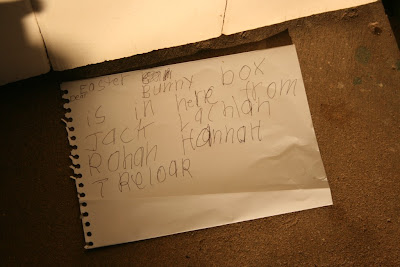 Easter Bunny box
is in here from
Jack Lachlan
Rohan HannaH
TReloar